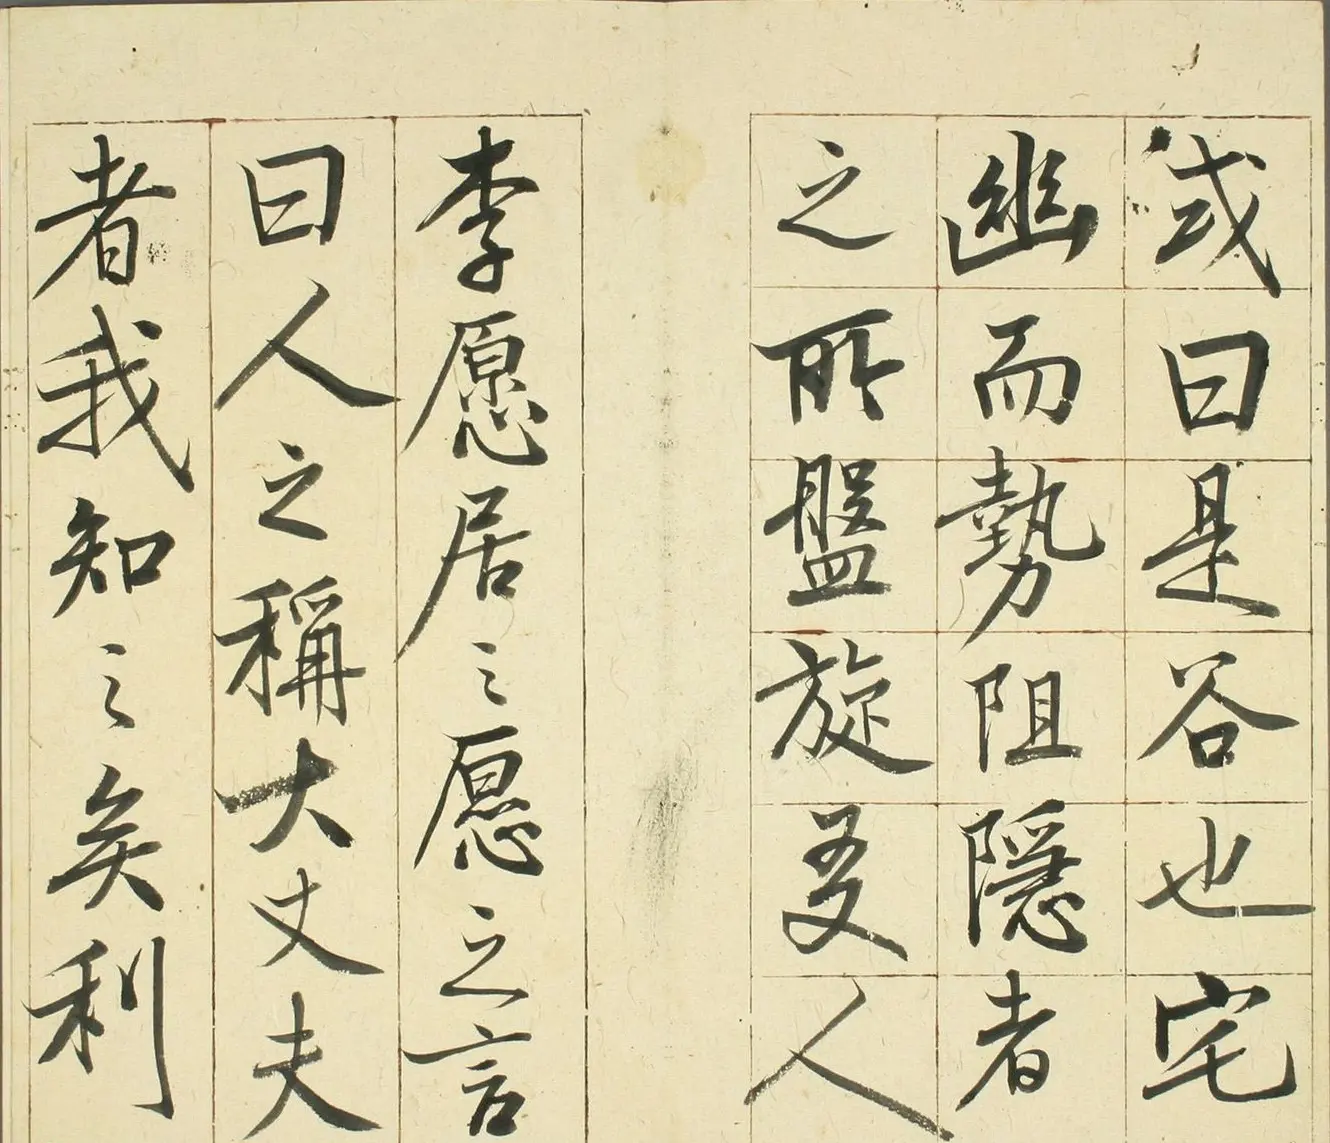 或曰是谷也宅
幽而勢阻隱者
之所盤旋友人
李愿居之愿之言
曰人之稱大丈夫
者我知之矣利